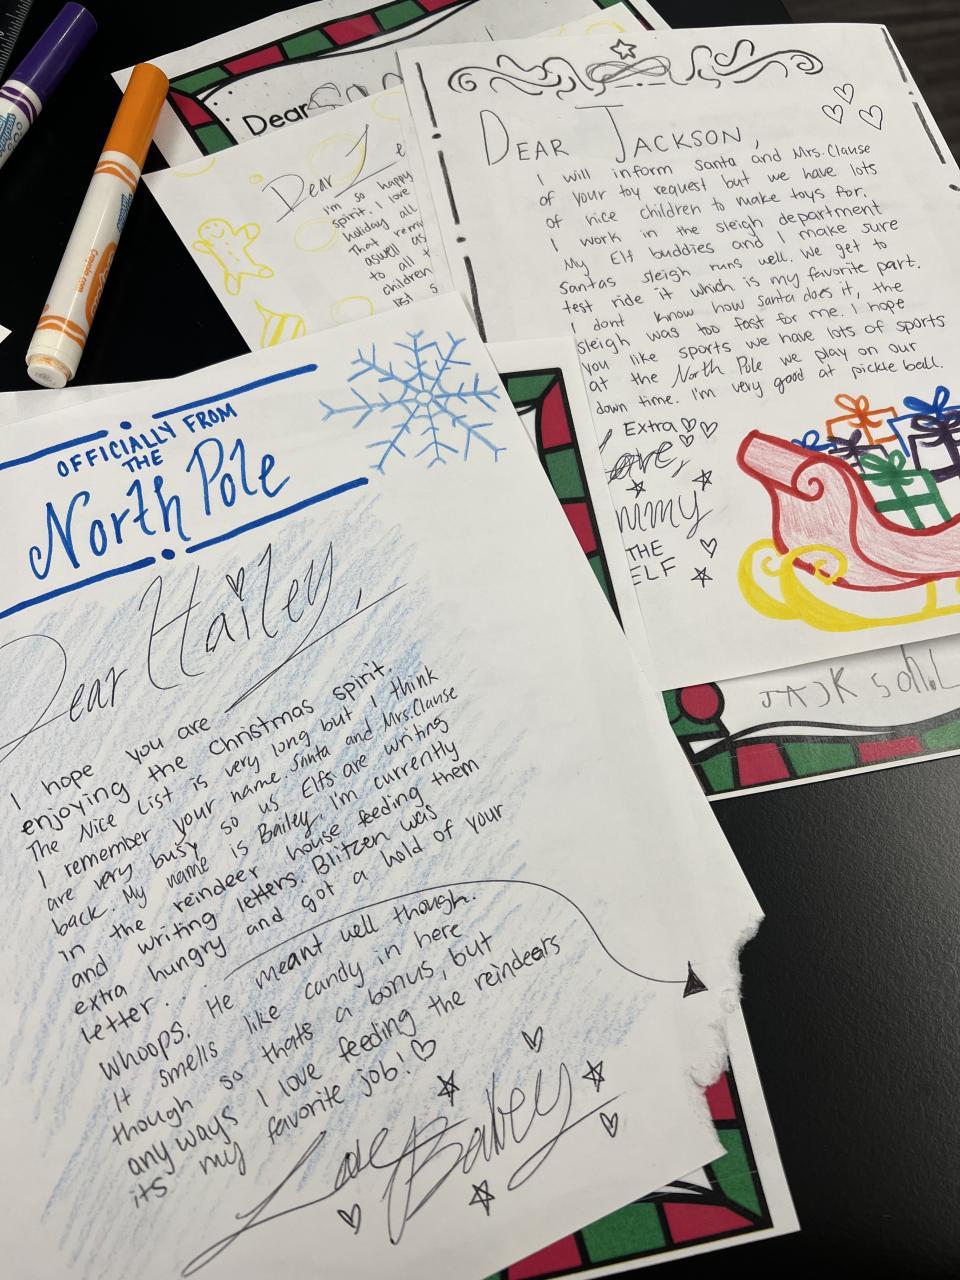 Dear
Dear
I'm so happy
spirit. I love
holiday all
That
aswell as
to all
children
list s
DEAR JACKSON,
I will inform Santa and Mrs. Clause
of your toy request but we have lots
of nice children to make toys for.
I work in the sleigh department
My Elf buddies and I make sure
santas sleigh runs well. We get to
test ride it which is my favorite part.
I dont know how santa does it, the
sleigh was too fast for me. I hope
you like sports we have lots of sports
at the North Pole we play on our
down time. I'm very good at pickle ball.
Extra
THE
ELF
JACKSON.L
OFFICIALLY FROM
THE
North Pole
Dear Hailey,
I hope you are
enjoying the Christmas spirit.
The Nice List is very long but I think
I remember your name. Santa and Mrs. Clause
are very busy so us Elfs are writing
back. My name is Bailey, I'm currently
in the reindeer house feeding them
and writing letters. Blitzen was
extra hungry and got a hold of your
letter...
Whoops. He meant well though.
It smells like candy in here
though so thats a bonus, but
anyways I love feeding the reindeers
its my favorite job!
Love Bailey
Crayola